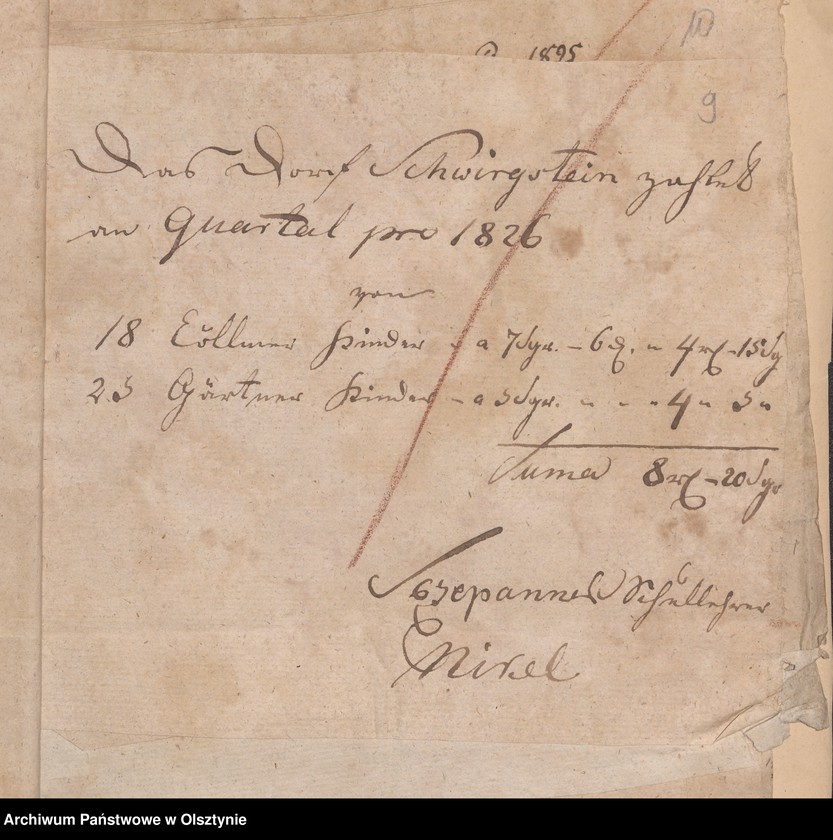 1895
10
9
Das Dorf Schwirgstein zahlet
an Quartal pro 1826
von
18 Cöllmer Kinder - a 7 Sgr. - 6 ₰. " 4 rℓ - 15 Sg
25 Gärtner Kinder - a 5 Sgr. " - - " 4 " 5 "
Suma 8 rℓ - 20 Sgr
Sczepannek Schullehrer
Nikel
Archiwum Państwowe w Olsztynie